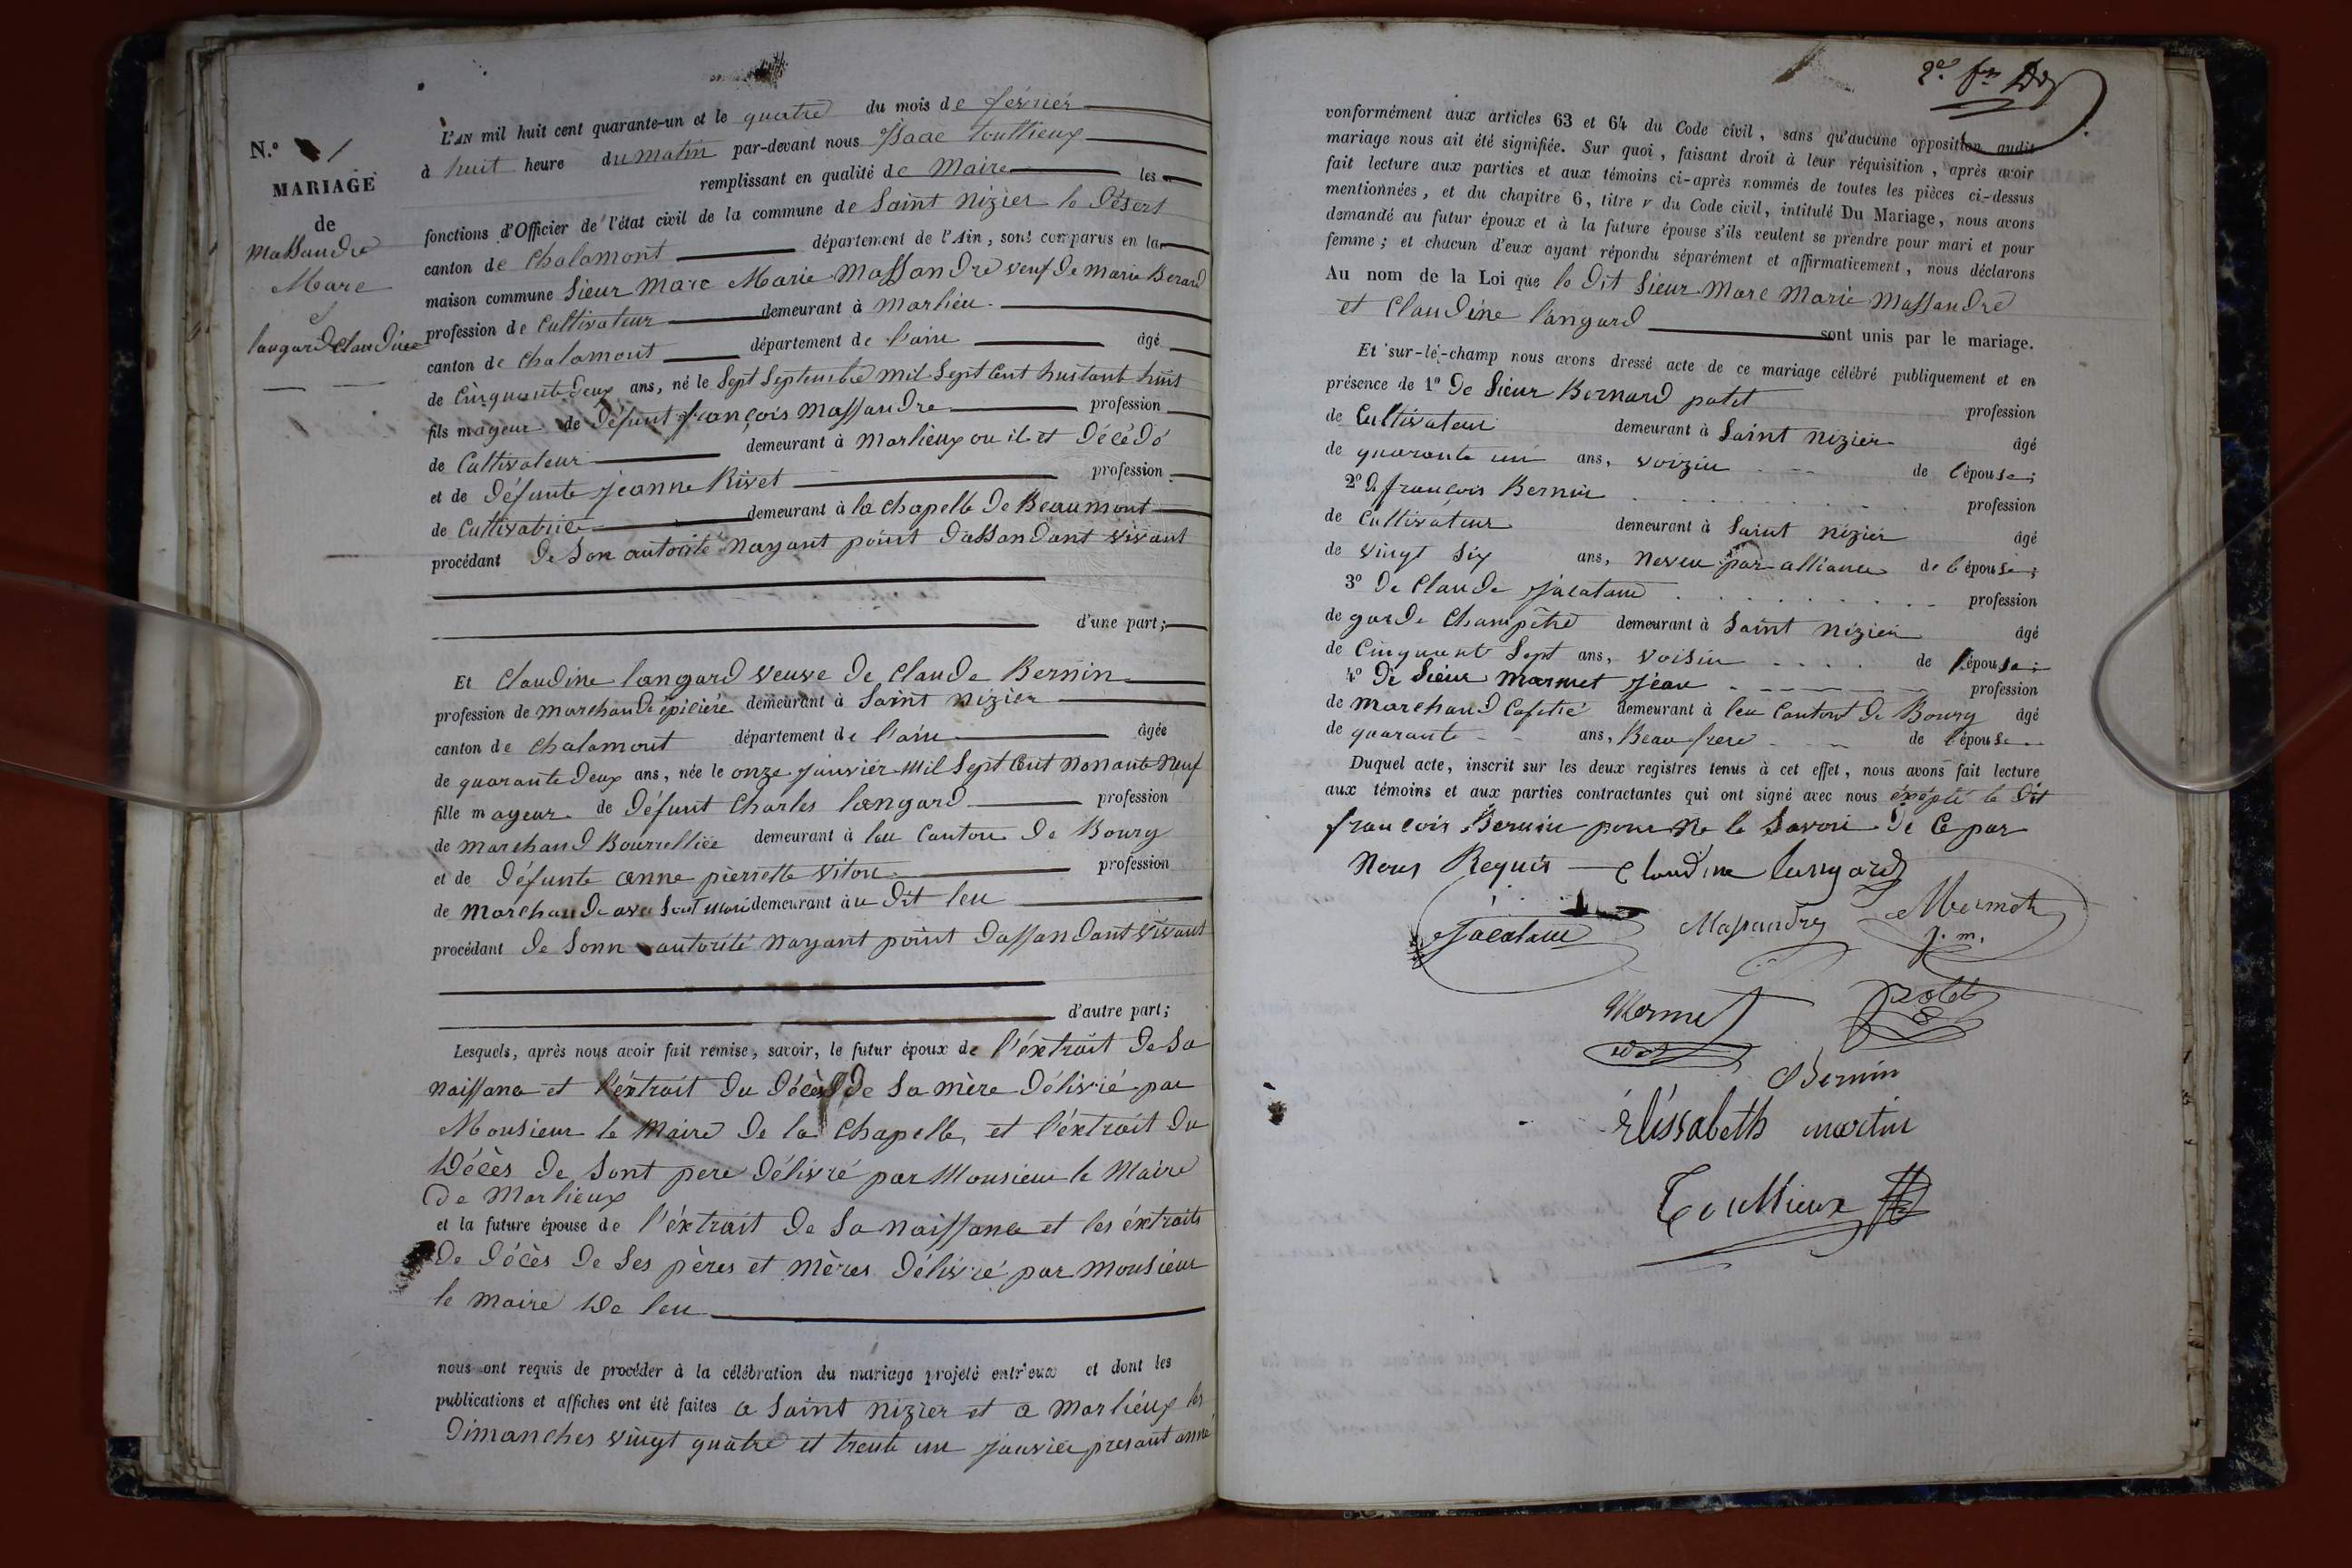 N.º 1
MARIAGE
de
Massandre
Marc
et
langard Claudine
L'AN mil huit cent quarante-un et le quatre du mois de février
à huit heure du matin par-devant nous Isaac touttieux
remplissant en qualité de Maire les
fonctions d'Officier de l'état civil de la commune de Saint Nizier le Désert
canton de Chalamont département de l'Ain, sont comparus en la
maison commune Sieur Marc Marie Massandre veuf de Marie Berard
profession de Cultivateur demeurant à Marlieu
canton de Chalamont département de l'ain âgé
de Cinquante deux ans, né le Sept Septembre mil Sept Cent huitant huit
fils mageur de Défunt françois Massandre profession
de Cultivateur demeurant à Marlieux ou il et Décédé
et de Défunte jeanne Rivet profession
de Cultivatrice demeurant à la chapelle de Beaumont
procédant de Son autorité nayant point dassandant vivant
d'une part;
Et Claudine langard veuve de Claude Bernin
profession de Marchande épiciére demeurant à Saint Nizier
canton de Chalamont département de l'ain âgée
de quarante deux ans, née le onze janvier mil Sept Cent Nonante Neuf
fille mageur de Défunt Charles langard profession
de marchand Bourrellier demeurant à leu Canton de Bourg
et de Défunte anne pierrette Viton profession
de Marchande avec Sont mari demeurant au Dit leu
procédant de Sonn autorité nayant point dassandant vivant
d'autre part;
Lesquels, après nous avoir fait remise, savoir, le futur époux de l'éxtrait de Sa
naissance et l'éxtrait du décès de Sa mère Délivré par
Monsieur le Maire de la Chapelle, et l'éxtrait du
Décès de Sont pere Délivré par Monsieur le Maire
de Marlieux
et la future épouse de l'éxtrait de Sa naissance et les éxtraits
de décès de Ses pères et mères Délivré par Monsieur
le maire de leu
nous ont requis de procéder à la célébration du mariage projeté entr'eux et dont les
publications et affiches ont été faites a Saint Nizier et a Marliéux les
Dimanches vingt quatre et trente un janvier presant anné
2e. fn
conformément aux articles 63 et 64 du Code civil, sans qu'aucune opposition audit
mariage nous ait été signifiée. Sur quoi, faisant droit à leur réquisition, après avoir
fait lecture aux parties et aux témoins ci-après nommés de toutes les pièces ci-dessus
mentionnées, et du chapitre 6, titre v du Code civil, intitulé Du Mariage, nous avons
demandé au futur époux et à la future épouse s'ils veulent se prendre pour mari et pour
femme; et chacun d'eux ayant répondu séparément et affirmativement, nous déclarons
Au nom de la Loi que le Dit Sieur Marc Marie Massandre
et Claudine langard sont unis par le mariage.
Et sur-le-champ nous avons dressé acte de ce mariage célébré publiquement et en
présence de 1º De Sieur Bernard patet profession
de Cultivateur demeurant à Saint Nizier âgé
de quarante un ans, voizin de l'épouse;
2º De françois Bernin profession
de Cultivateur demeurant à Saint Nizier âgé
de vingt Six ans, neveu par alliance de l'épouse;
3º De Claude jacatane profession
de garde Champêtre demeurant à Saint Nizier âgé
de Cinquante Sept ans, voisin de l'épouse;
4º De Sieur Mormet jean profession
de marchand Cafetié demeurant à leu Canton de Bourg âgé
de quarante ans, Beau frere de l'épouse
Duquel acte, inscrit sur les deux registres tenus à cet effet, nous avons fait lecture
aux témoins et aux parties contractantes qui ont signé avec nous éxépté le Dit
françois Bernin pour Ne le Savoir De Ce par
Nous Requis Claudine langard
Jacatane Massandre Mermet
j. m.
Mermet Patet
Bernin
Elissabeth martin
Touttieux